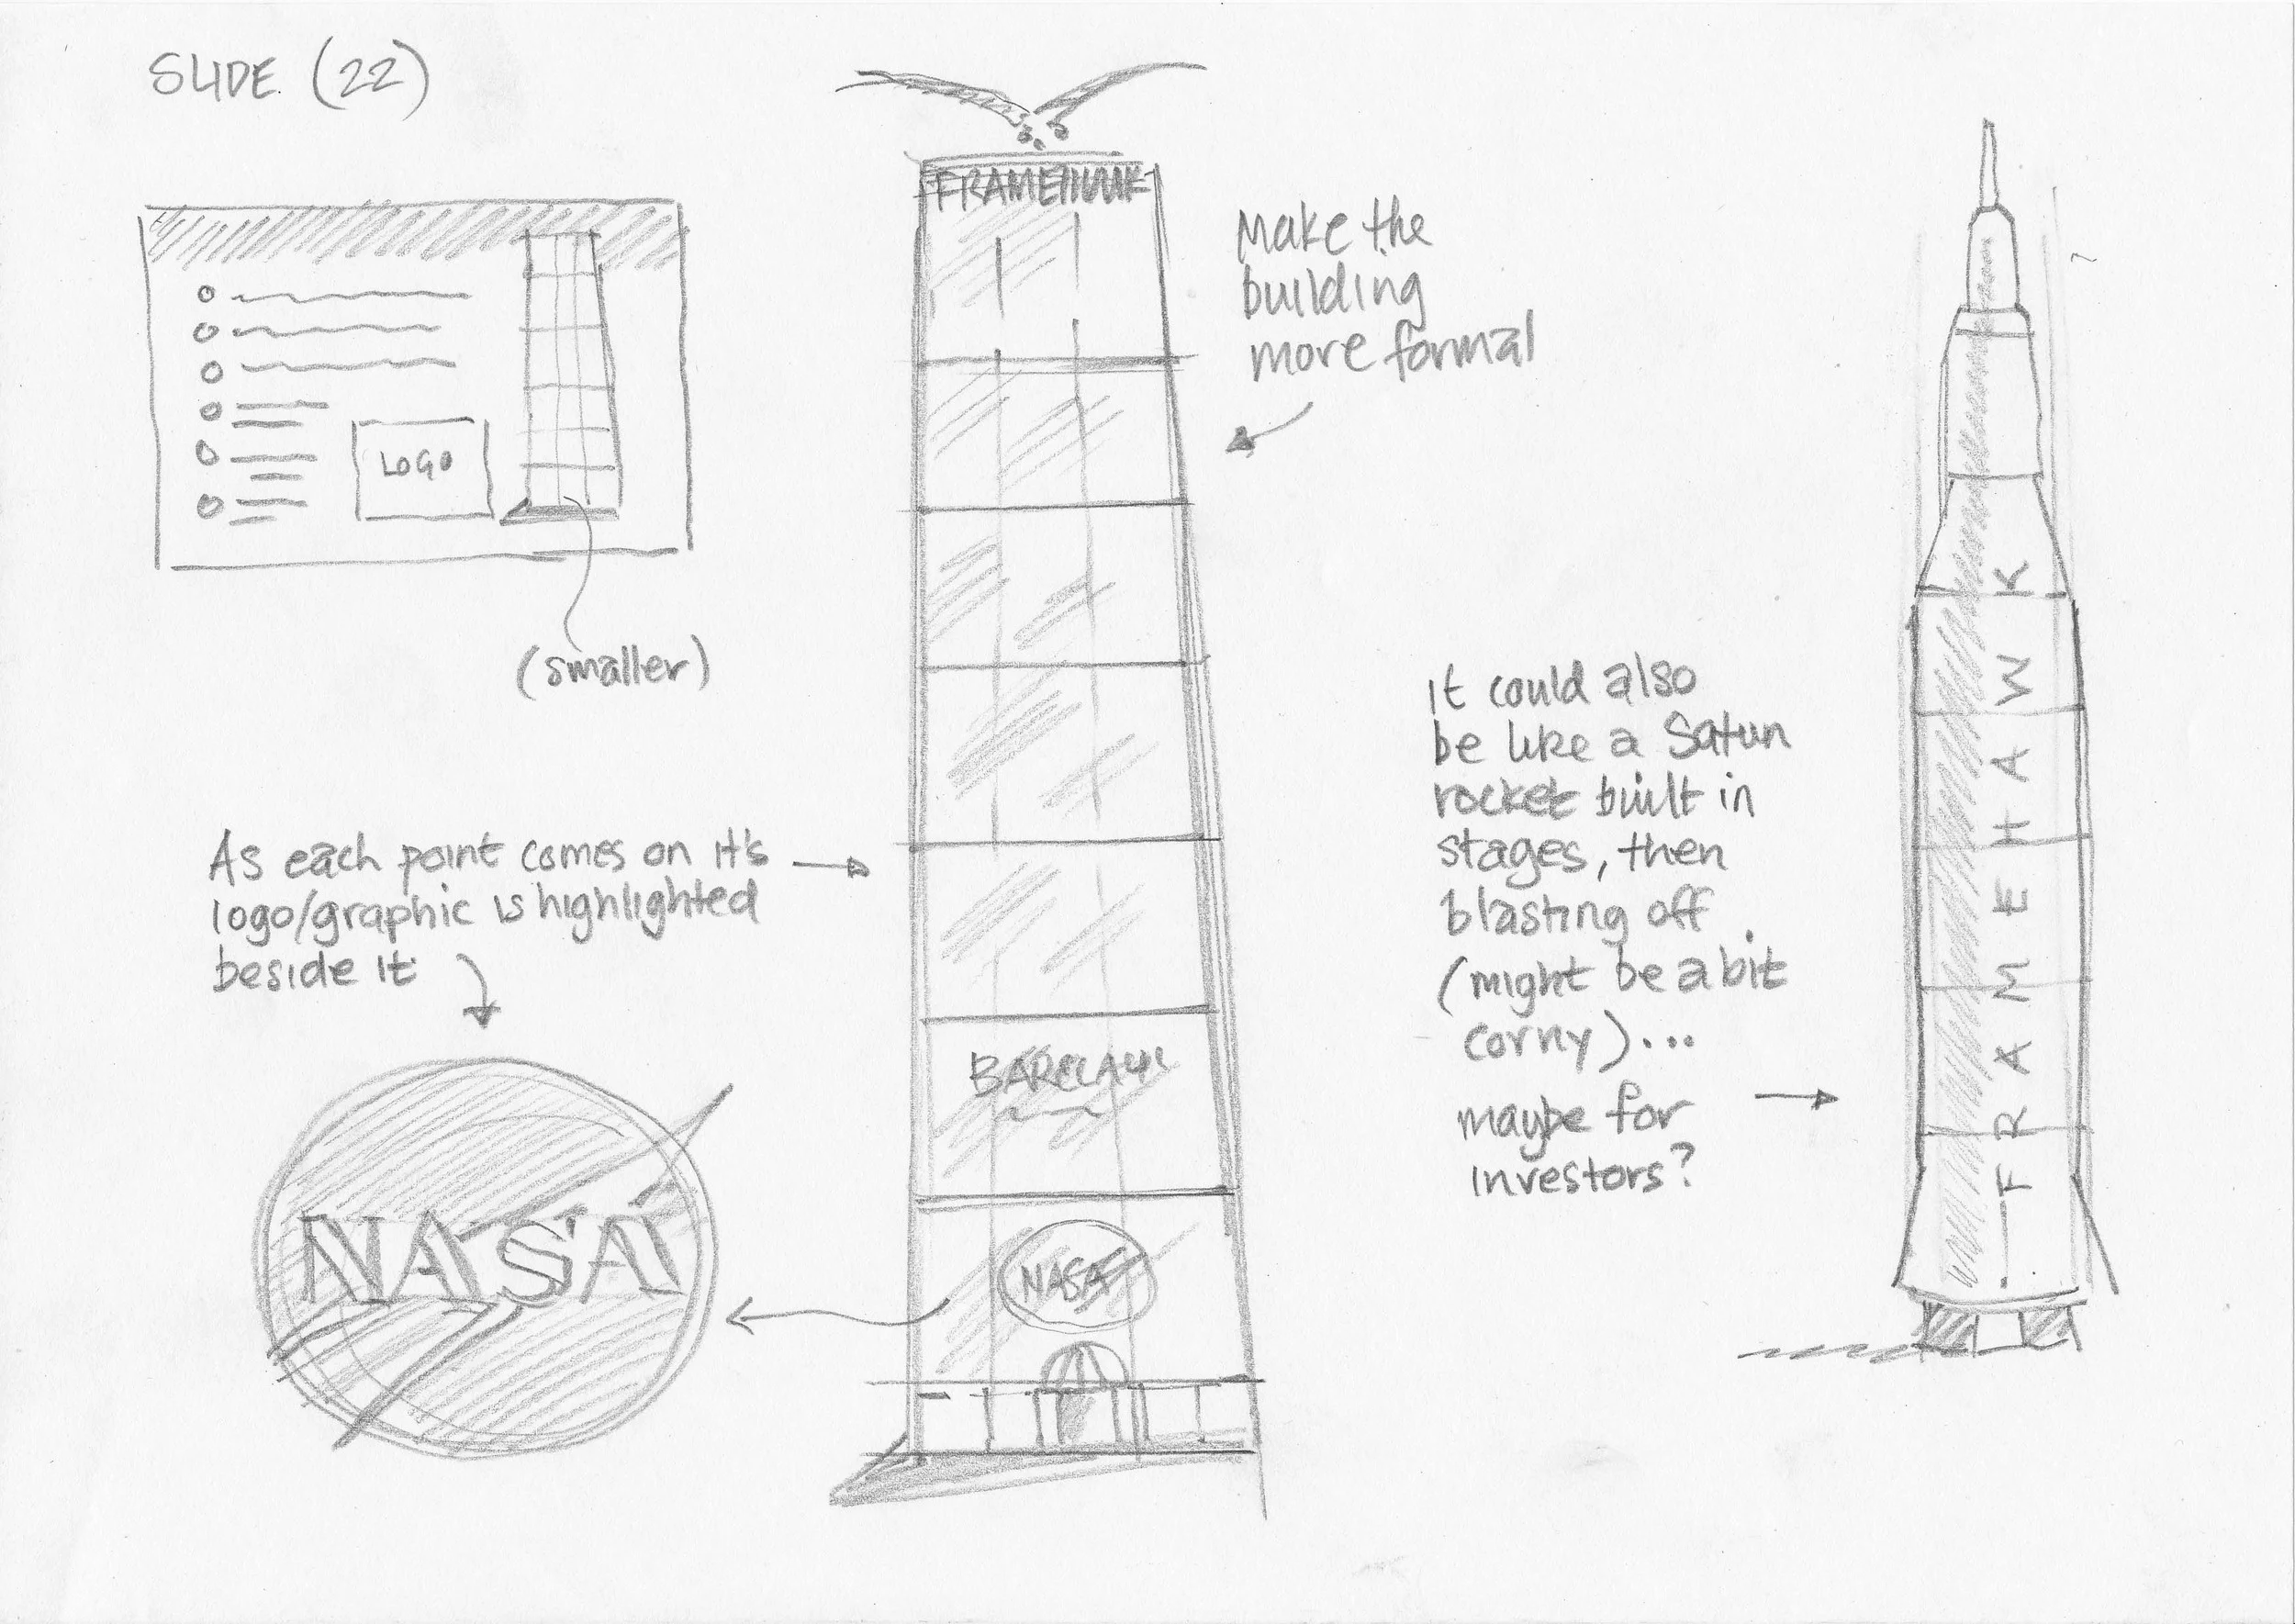 SLIDE (22)
LOGO
(smaller)
As each point comes on it's
logo/graphic is highlighted
beside it
NASA
FRAMEHAWK
Make the
building
more formal
BARCLAYS
NASA
it could also
be like a Saturn
rocket built in
stages, then
blasting off
(might be a bit
corny)...
maybe for
investors?
FRAMEHAWK